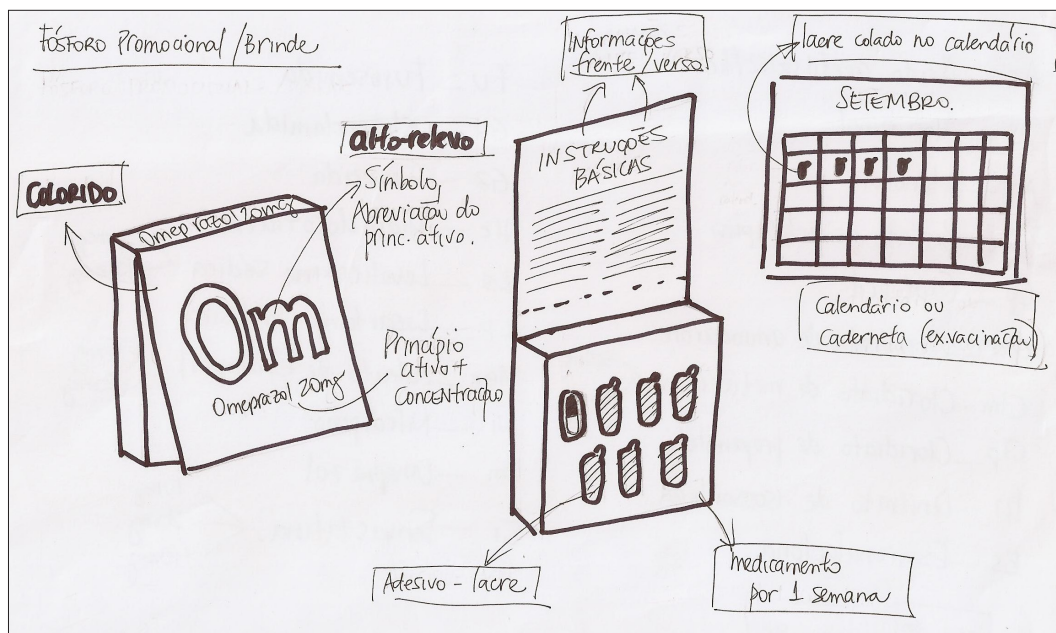 FÓSFORO Promocional / Brinde
COLORIDO
Omeprazol 20mg
alto-relevo
Símbolo,
Abreviação do
princ. ativo.
Om
Omeprazol 20mg
Princípio
ativo +
Concentração
Informações
frente / verso
INSTRUÇÕES
BÁSICAS
Adesivo - lacre
medicamento
por 1 semana
lacre colado no calendário
SETEMBRO.
Calendário ou
Caderneta (ex.vacinação)